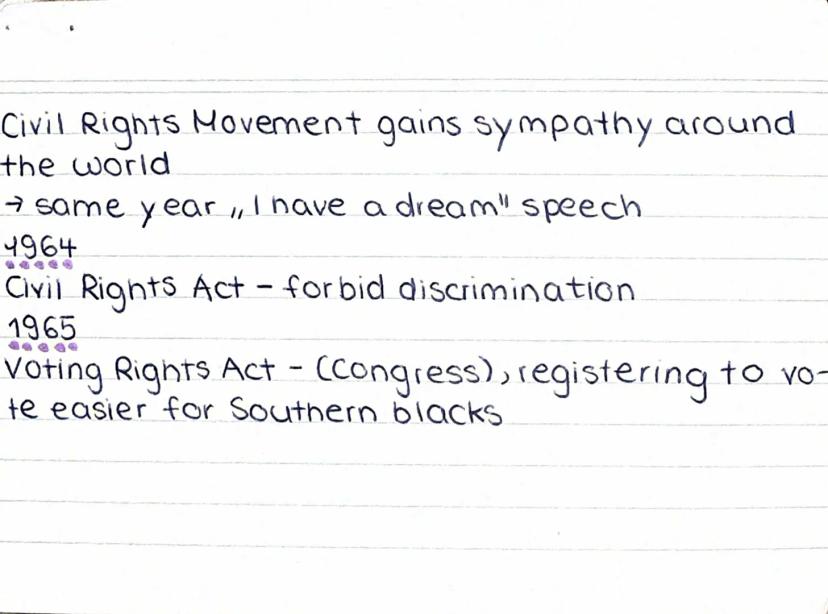 Civil Rights Movement gains sympathy around
the world
→ same year „I have a dream" speech
1964
Civil Rights Act - forbid discrimination
1965
Voting Rights Act - (Congress), registering to vo-
te easier for Southern blacks